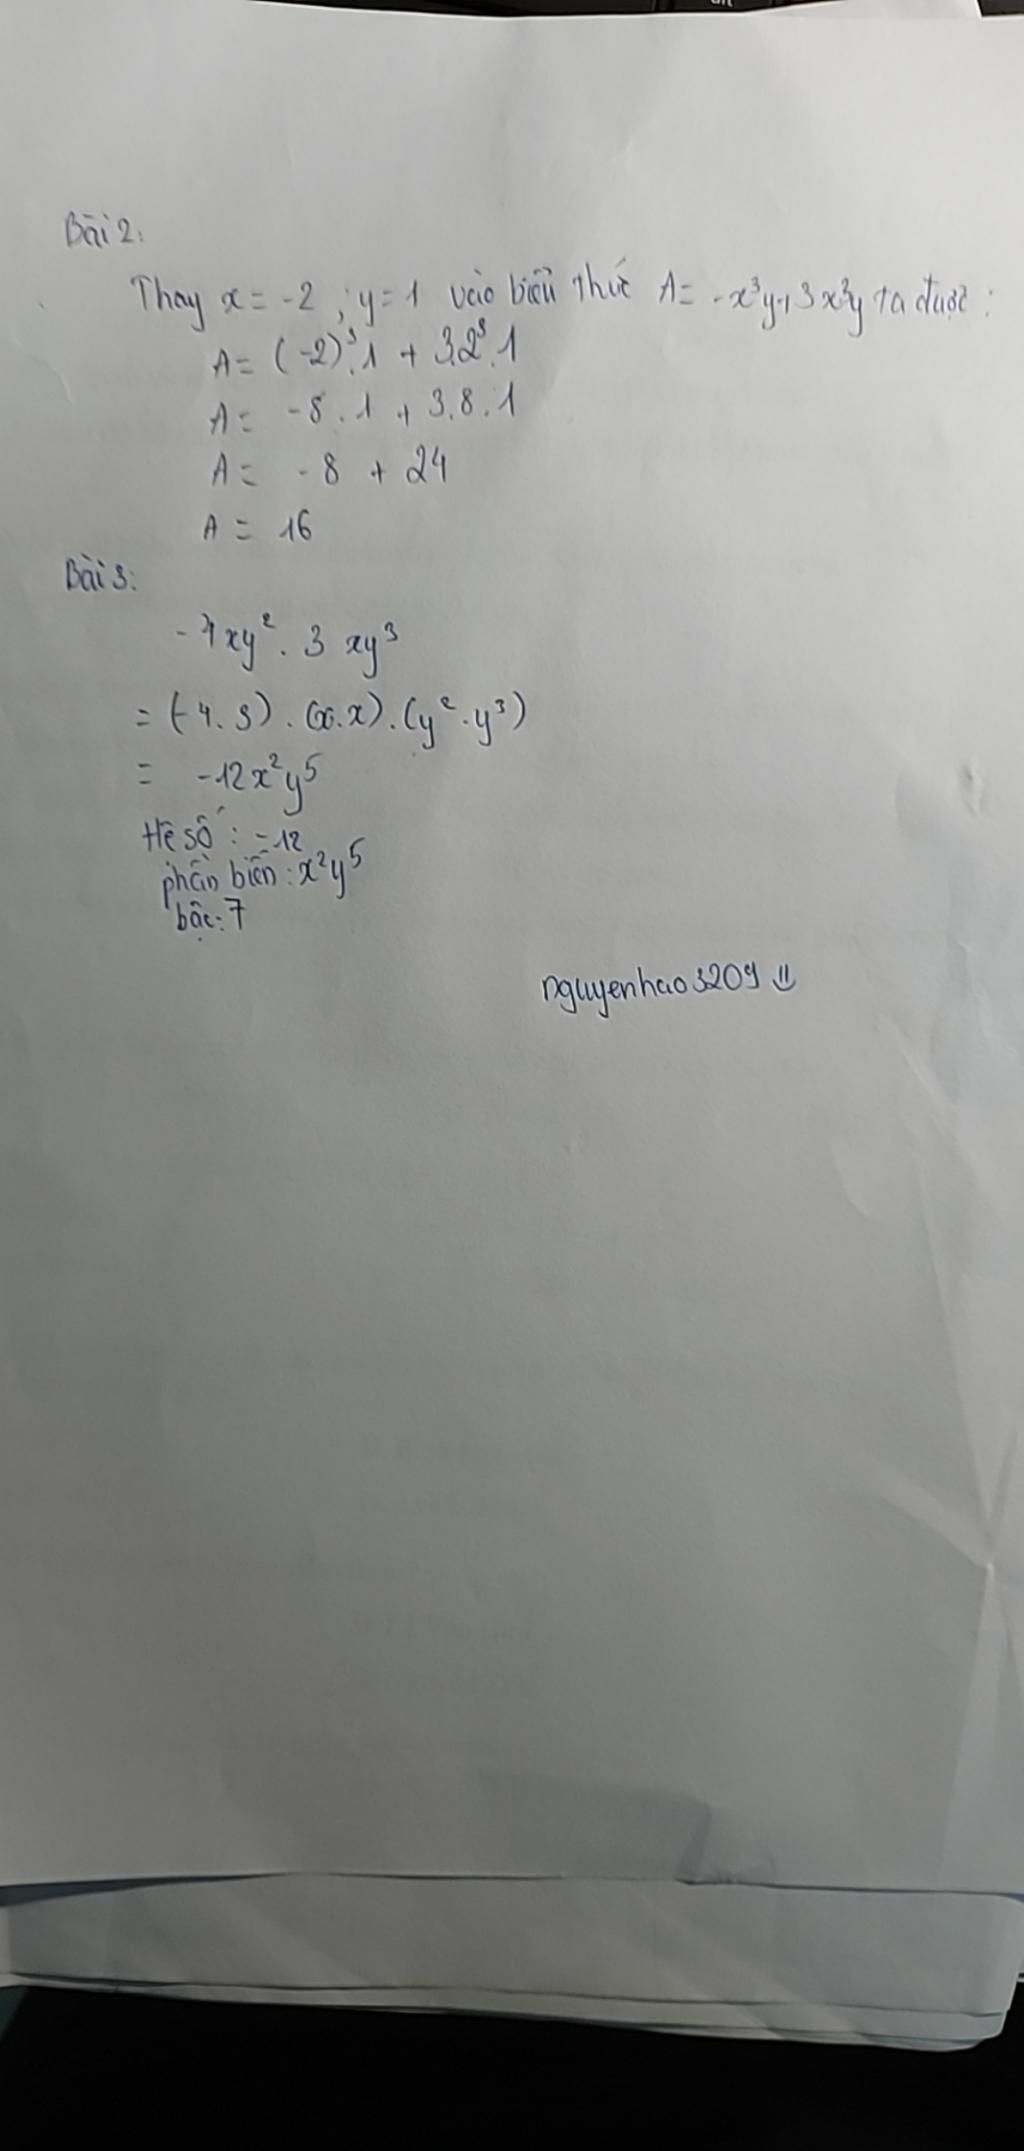 Bài 2:
Thay x = -2 ; y = 1 vào biểu thức A = -x³y + 3x³y ta được :
A = (-2)³.1 + 3.2³.1
A = -8 . 1 + 3.8.1
A = -8 + 24
A = 16
Bài 3:
-4xy² . 3 xy³
= (-4.3) . (x.x) . (y² . y³)
= -12x²y⁵
Hệ số : -12
phần biến : x²y⁵
bậc : 7
nguyenhao3209